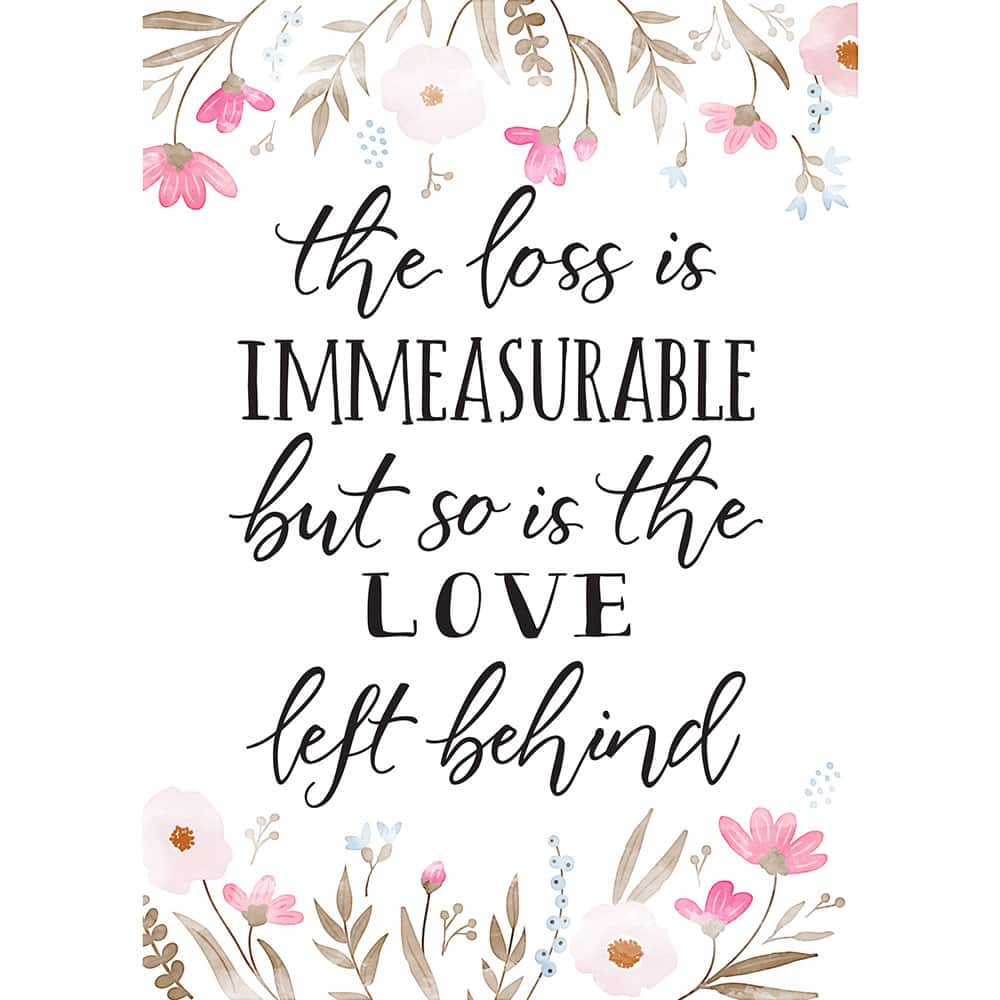 the loss is
IMMEASURABLE
but so is the
LOVE
left behind